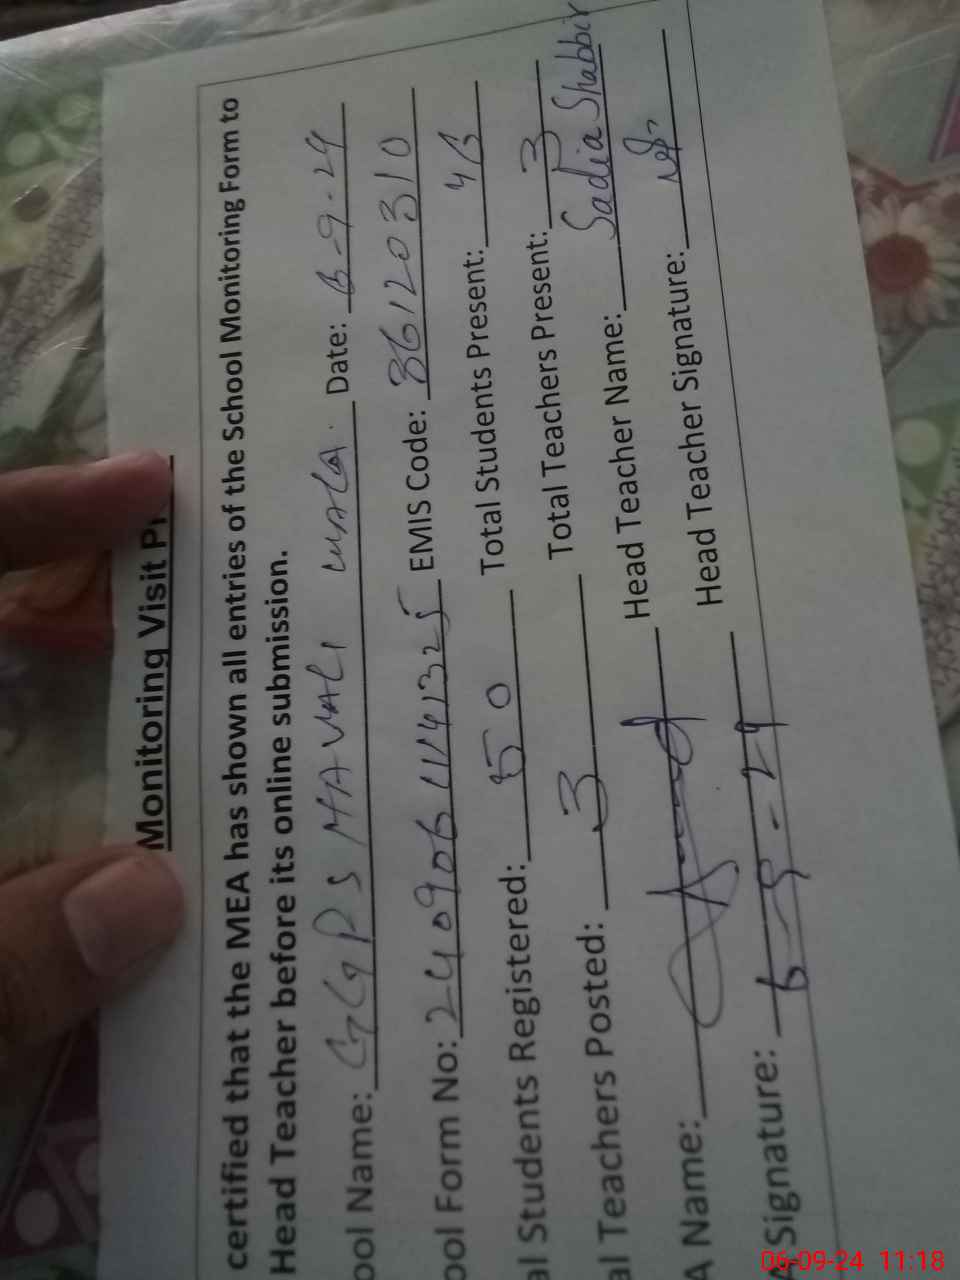 Monitoring Visit Pr
certified that the MEA has shown all entries of the School Monitoring Form to
Head Teacher before its online submission.
ool Name: GGPS MAVALI WALA. Date: 6-9-24
ool Form No: 24090611141325 EMIS Code: 36120310
al Students Registered: 50 Total Students Present:
al Teachers Posted: 3 Total Teachers Present: 3
A Name: Head Teacher Name: Sadia Shabbir
A Signature: 6-9-24 Head Teacher Signature:
06-09-24 11:18